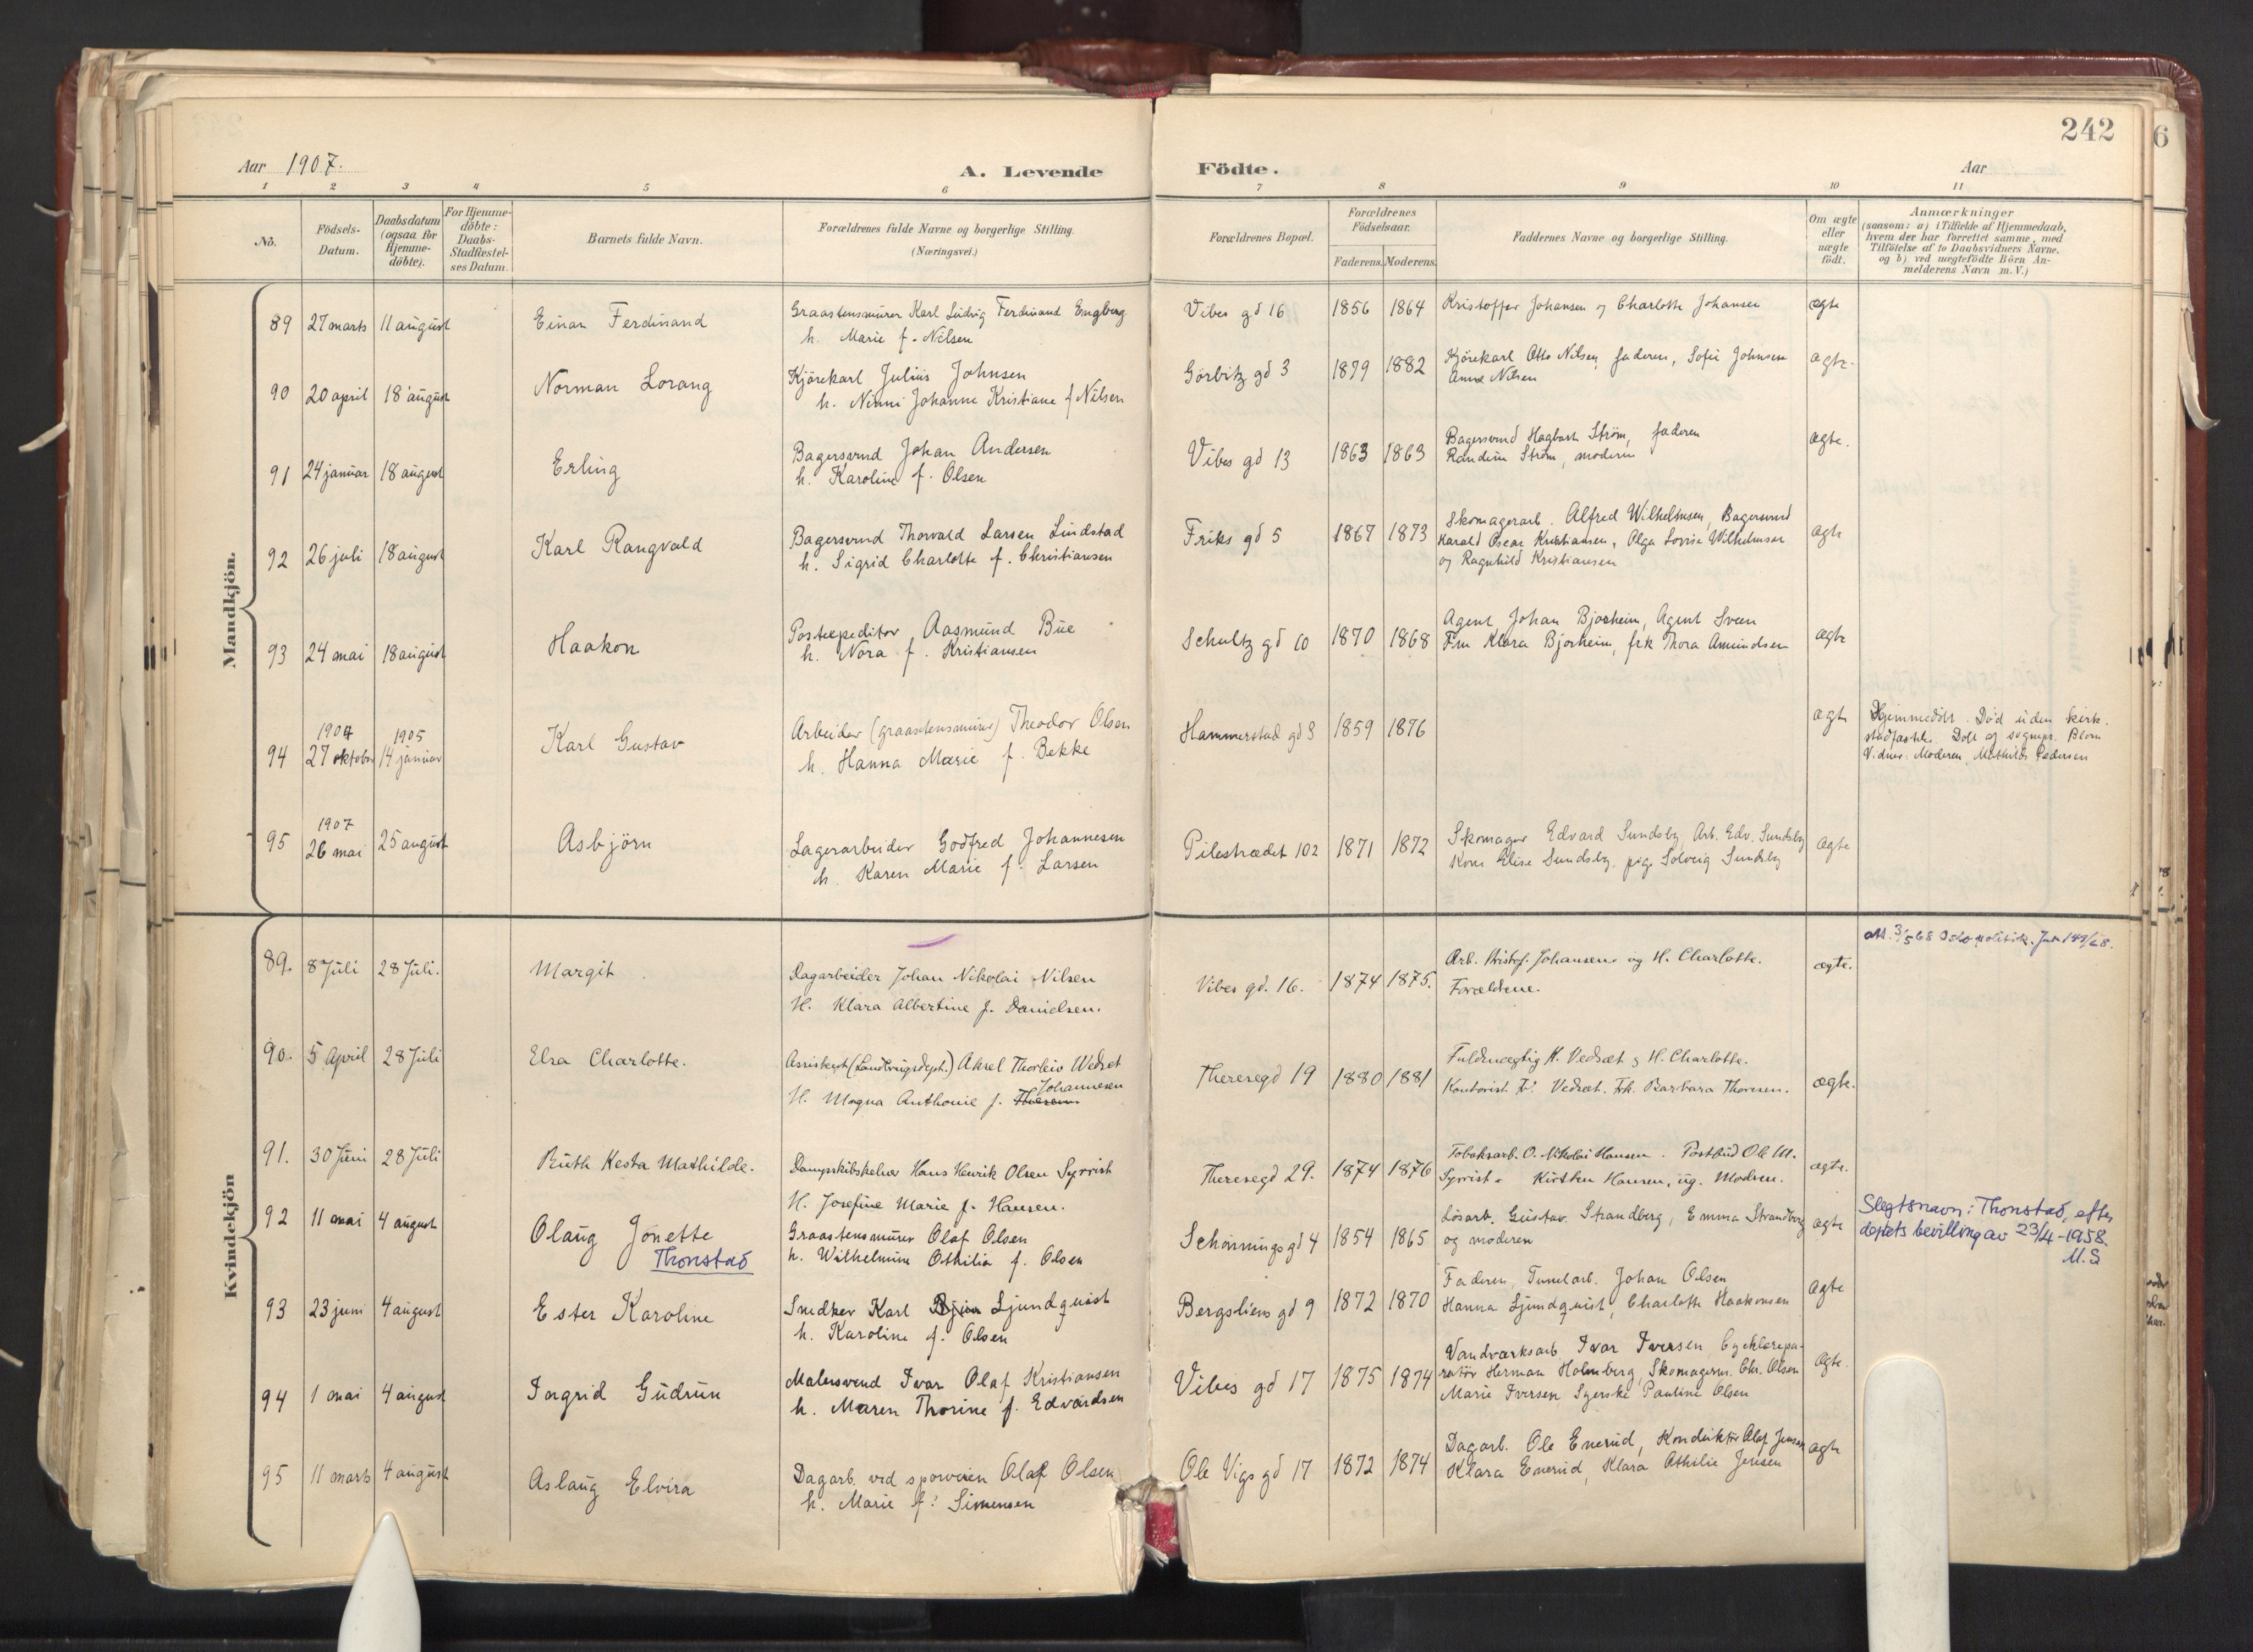 242
6
Aar 1907. A. Levende Födte. Aar
1 2 3 4 5 6 7 8 9 10 11
No.
Födsels-
Datum.
Daabsdatum
(ogsaa for
Hjemme-
döbte).
For Hjemme-
döbte:
Daabs-
Stadfæstel-
ses Datum.
Barnets fulde Navn.
Forældrenes fulde Navne og borgerlige Stilling.
(Næringsvei.)
Forældrenes Bopæl.
Forældrenes
Födselsaar.
Faderens. Moderens.
Faddernes Navne og borgerlige Stilling.
Om ægte
eller
uægte
födt.
Anmærkninger
(saasom: a) i Tilfælde af Hjemmedaab,
hvem der har forrettet samme, med
Tilföielse af to Daabsvidners Navne,
og b) ved uægtefödte Börn An-
melderens Navn m. V.)
Mandkjön.
89 27 marts 11 august Einar Ferdinand Graastensmurer Karl Ludvig Ferdinand Engberg Vibes gd 16 1856 1864 Kristoffer Johansen og Charlotte Johansen ægte
h. Marie f. Nilsen
90 20 april 18 august Norman Lorang Kjörekarl Julius Johnsen Görbitz gd 3 1879 1882 Kjörekarl Otto Nilsen, faderen, Sofie Johnsen ægte.
h. Ninni Johanne Kristiane f Nilsen Anna Nilsen
91 24 januar 18 august Erling Bagersvend Johan Andersen Vibes gd 13 1863 1863 Bagersvend Hagbart Ström, faderen ægte.
h. Karoline f. Olsen Randine Ström, moderen
92 26 juli 18 august Karl Rangvald Bagersvend Thorvald Larsen Lindstad Friks gd 5 1867 1873 Skomagerarb. Alfred Wilhelmsen, Bagersvend ægte
h. Sigrid Charlotte f. Christiansen Harald Oscar Kristiansen, Olga Lovise Wilhelmsen
og Ragnhild Kristiansen
93 24 mai 18 august Haakon Postexpeditor Aasmund Bue Schultz gd 10 1870 1868 Agent Johan Bjorheim, Agent Sveen ægte
h. Nora f. Kristiansen Fru Klara Bjorheim, frk Thora Amundsen
1904 1905
94 27 oktober 14 januar Karl Gustav Arbeider (graastensmurer) Theodor Olsen Hammerstad gd 8 1859 1876 ægte Hjemmedöbt. Död uden kirk.
h. Hanna Marie f. Bekke stadfæstelse. Döbt af sognepr. Blom
Vidner: Moderen, Mathilde Pedersen
1907
95 26 mai 25 august Asbjörn Lagerarbeider Godfred Johannesen Pilestrædet 102 1871 1872 Skomager Edvard Sundsby, Arb. Edv. Sundsby ægte
h. Karen Marie f. Larsen Kone Elise Sundsby. pige Solveig Sundsby
Kvindekjön
att. 3/5 68 Oslo politik. Jnr 149/68.
89. 8 Juli 28 Juli. Margit Dagarbeider Johan Nikolai Nilsen Vibes gd. 16. 1874 1875. Arb. Kristof. Johansen og H. Charlotte. ægte.
H. Klara Albertine f. Danielsen. Forældrene.
90. 5 April 28 Juli Elsa Charlotte. Assistent (Landbrugsdept.) Aksel Thorleiv Vedset Theresegd 19 1880 1881 Fuldmægtig K. Vedsæt & H. Charlotte. ægte.
Johannesen
H. Magna Anthonie f. Kontorist Vedsæt. Frk. Barbara Thoresen.
91. 30 Juni 28 Juli Ruth Hesta Mathilde. Dampskibskelner Hans Henrik Olsen Syrrist Theresegd 29. 1874 1876 Tobaksarb. O. Nikolai Hansen. Postbud Ole M. ægte.
H. Josefine Marie f. Hansen. Syrrist. Kirsten Hansen, ug. Modren.
92 11 mai 4 august Olaug Jonette Graastensmurer Olaf Olsen Schönnings gd 4 1854 1865 Lösarb. Gustav Strandberg, Emma Strandberg ægte Slegtsnavn: Thonstad, efter
Thonstad h. Wilhelmine Othilia f. Olsen og moderen depets bevilling av 23/4-1958.
M.S
93 23 juni 4 august Ester Karoline Snedker Karl Ljundquist Bergsliens gd 9 1872 1870 Faderen, Tunelarb. Johan Olsen ægte
h. Karoline f. Olsen Hanna Ljundquist, Charlotte Haakonsen
94 1 mai 4 august Ingrid Gudrun Malersvend Ivar Olaf Kristiansen Vibes gd 17 1875 1874 Vandværksarb Ivar Iversen, Cyclerepa- ægte.
h. Maren Thorine f. Edvardsen ratör Herman Holmberg, Skomagersv. Chr. Olsen
Marie Iversen Syerske Pauline Olsen
95 11 marts 4 august Aslaug Elvira Dagarb. ved sporveien Olaf Olsen Ole Vigs gd 17 1872 1874 Dagarb. Ole Enerud, Konduktör Olaf Jensen ægte
h. Marie f. Simensen Klara Enerud, Klara Othilie Jensen